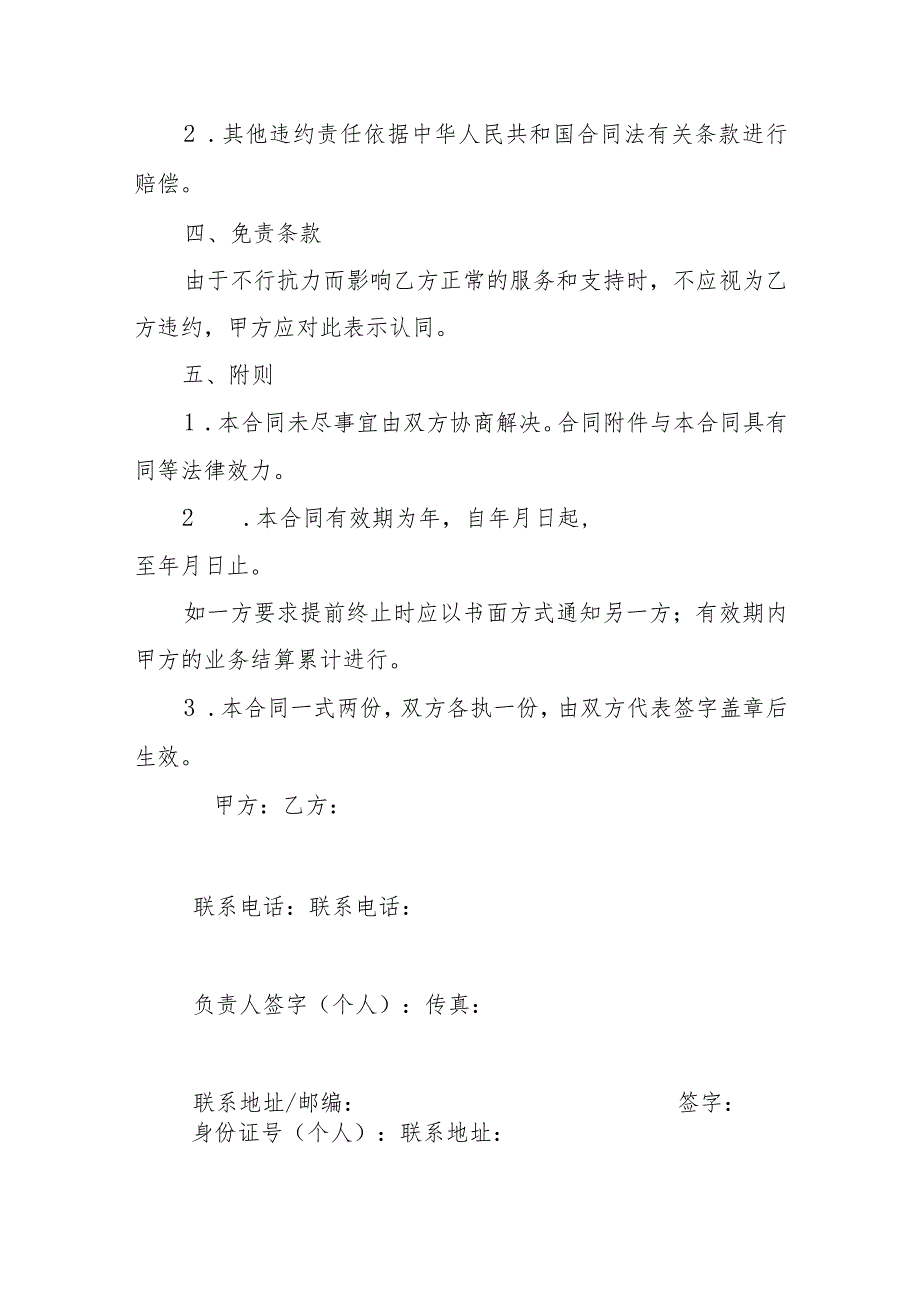 2 .其他违约责任依据中华人民共和国合同法有关条款进行
赔偿。
四、免责条款
由于不行抗力而影响乙方正常的服务和支持时，不应视为乙
方违约，甲方应对此表示认同。
五、附则
1 .本合同未尽事宜由双方协商解决。合同附件与本合同具有
同等法律效力。
2 .本合同有效期为年，自年月日起,
至年月日止。
如一方要求提前终止时应以书面方式通知另一方；有效期内
甲方的业务结算累计进行。
3 .本合同一式两份，双方各执一份，由双方代表签字盖章后
生效。
甲方：乙方：
联系电话：联系电话：
负责人签字（个人）：传真：
联系地址/邮编： 签字：
身份证号（个人）：联系地址：